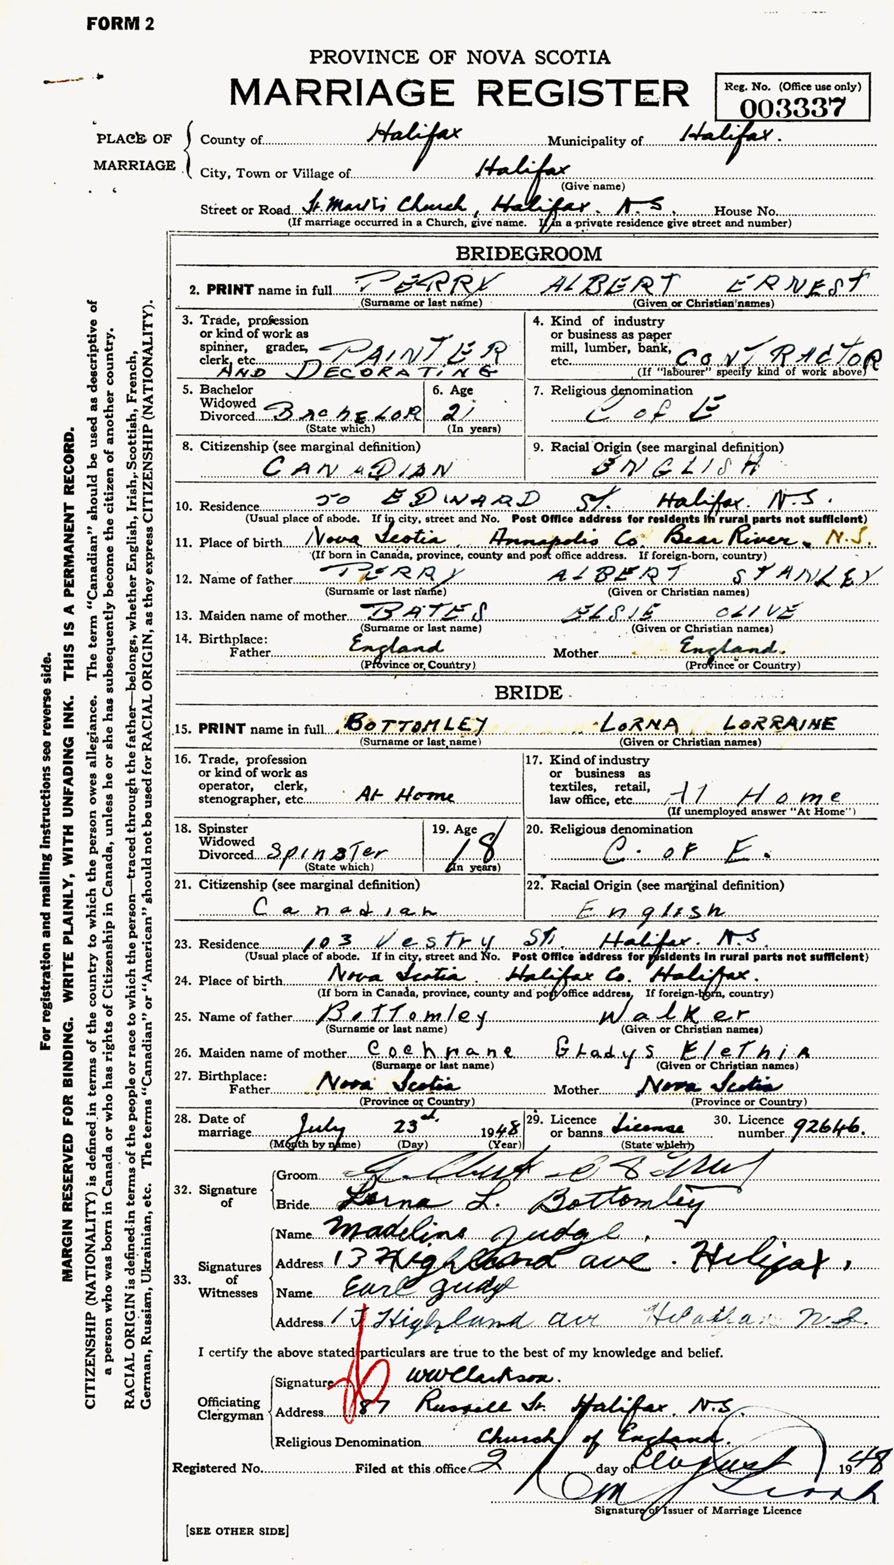 FORM 2
PROVINCE OF NOVA SCOTIA
MARRIAGE REGISTER
Reg. No. (Office use only)
003337
PLACE OF MARRIAGE
County of Halifax Municipality of Halifax.
City, Town or Village of Halifax
(Give name)
Street or Road St. Mark's Church, Halifax. N.S. House No.
(If marriage occurred in a Church, give name. If in a private residence give street and number)
BRIDEGROOM
2. PRINT name in full PERRY ALBERT ERNEST
(Surname or last name) (Given or Christian names)
3. Trade, profession or kind of work as spinner, grader, clerk, etc. PAINTER AND DECORATING
4. Kind of industry or business as paper mill, lumber, bank, etc. CONTRACTOR
(If "labourer" specify kind of work above)
5. Bachelor Widowed Divorced BACHELOR
(State which)
6. Age 21
(In years)
7. Religious denomination C of E
8. Citizenship (see marginal definition) CANADIAN
9. Racial Origin (see marginal definition) ENGLISH
10. Residence 50 EDWARD St. Halifax. N.S.
(Usual place of abode. If in city, street and No. Post Office address for residents in rural parts not sufficient)
11. Place of birth Nova Scotia, Annapolis Co. Bear River. N.S.
(If born in Canada, province, county and post office address. If foreign-born, country)
12. Name of father PERRY ALBERT STANLEY
(Surname or last name) (Given or Christian names)
13. Maiden name of mother BATES ELSIE OLIVE
(Surname or last name) (Given or Christian names)
14. Birthplace: Father England Mother England.
(Province or Country) (Province or Country)
BRIDE
15. PRINT name in full BOTTOMLEY LORNA LORRAINE
(Surname or last name) (Given or Christian names)
16. Trade, profession or kind of work as operator, clerk, stenographer, etc. At Home
17. Kind of industry or business as textiles, retail, law office, etc. At Home
(If unemployed answer "At Home")
18. Spinster Widowed Divorced Spinster
(State which)
19. Age 18
(In years)
20. Religious denomination C. of E.
21. Citizenship (see marginal definition) Canadian
22. Racial Origin (see marginal definition) English
23. Residence 103 Vestry St. Halifax. N.S.
(Usual place of abode. If in city, street and No. Post Office address for residents in rural parts not sufficient)
24. Place of birth Nova Scotia. Halifax Co. Halifax.
(If born in Canada, province, county and post office address. If foreign-born, country)
25. Name of father Bottomley Walker
(Surname or last name) (Given or Christian names)
26. Maiden name of mother Cochrane Gladys Elethia
(Surname or last name) (Given or Christian names)
27. Birthplace: Father Nova Scotia Mother Nova Scotia
(Province or Country) (Province or Country)
28. Date of marriage July 23rd. 1948
(Month by name) (Day) (Year)
29. Licence or banns License
(State which)
30. Licence number 92646.
32. Signature of
Groom
Bride Lorna L. Bottomley
33. Signatures of Witnesses
Name Madeline Judge.
Address 13 Highland ave. Halifax,
Name Earl Judge
Address 13 Highland ave Halifax N.S.
I certify the above stated particulars are true to the best of my knowledge and belief.
Officiating Clergyman
Signature WWClarkson.
Address 87 Russell St. Halifax. N.S.
Religious Denomination Church of England.
Registered No. Filed at this office 2 day of August 1948
Signature of Issuer of Marriage Licence
[SEE OTHER SIDE]
For registration and mailing instructions see reverse side.
MARGIN RESERVED FOR BINDING. WRITE PLAINLY, WITH UNFADING INK. THIS IS A PERMANENT RECORD.
CITIZENSHIP (NATIONALITY) is defined in terms of the country to which the person owes allegiance. The term "Canadian" should be used as descriptive of
a person who was born in Canada or who has rights of Citizenship in Canada, unless he or she has subsequently become the citizen of another country.
RACIAL ORIGIN is defined in terms of the people or race to which the person—traced through the father—belongs, whether English, Irish, Scottish, French,
German, Russian, Ukrainian, etc. The terms "Canadian" or "American" should not be used for RACIAL ORIGIN, as they express CITIZENSHIP (NATIONALITY).